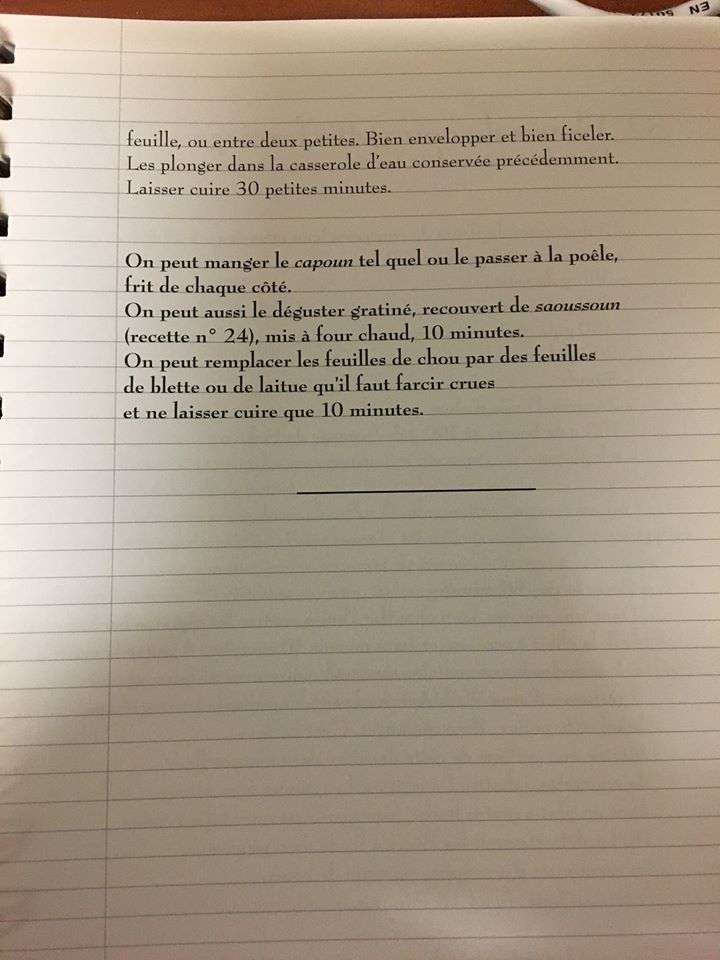 feuille, ou entre deux petites. Bien envelopper et bien ficeler.
Les plonger dans la casserole d'eau conservée précédemment.
Laisser cuire 30 petites minutes.
On peut manger le capoun tel quel ou le passer à la poêle,
frit de chaque côté.
On peut aussi le déguster gratiné, recouvert de saoussoun
(recette n° 24), mis à four chaud, 10 minutes.
On peut remplacer les feuilles de chou par des feuilles
de blette ou de laitue qu'il faut farcir crues
et ne laisser cuire que 10 minutes.